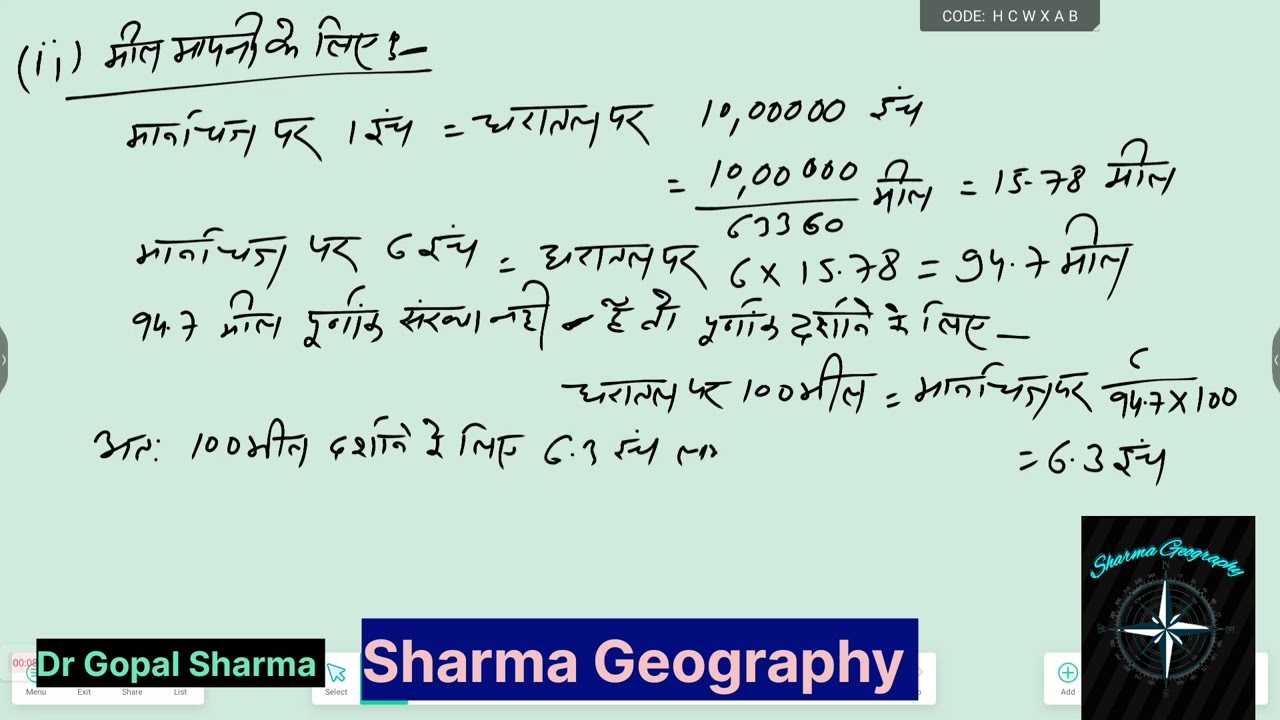 CODE: H C W X A B
(ii) मील मापनी के लिए :-
मानचित्र पर 1 इंच = धरातल पर 10,00000 इंच
= 10,00000 / 63360 मील = 15.78 मील
मानचित्र पर 6 इंच = धरातल पर 6 × 15.78 = 94.7 मील
94.7 मील पूर्णांक संख्या नही है तो पूर्णांक दर्शाने के लिए _
धरातल पर 100 मील = मानचित्र पर 6 / 94.7 × 100
अत: 100 मील दर्शाने के लिए 6.3 इंच = 6.3 इंच
Sharma Geography
Dr Gopal Sharma
Sharma Geography
Menu Exit Share List Select Add